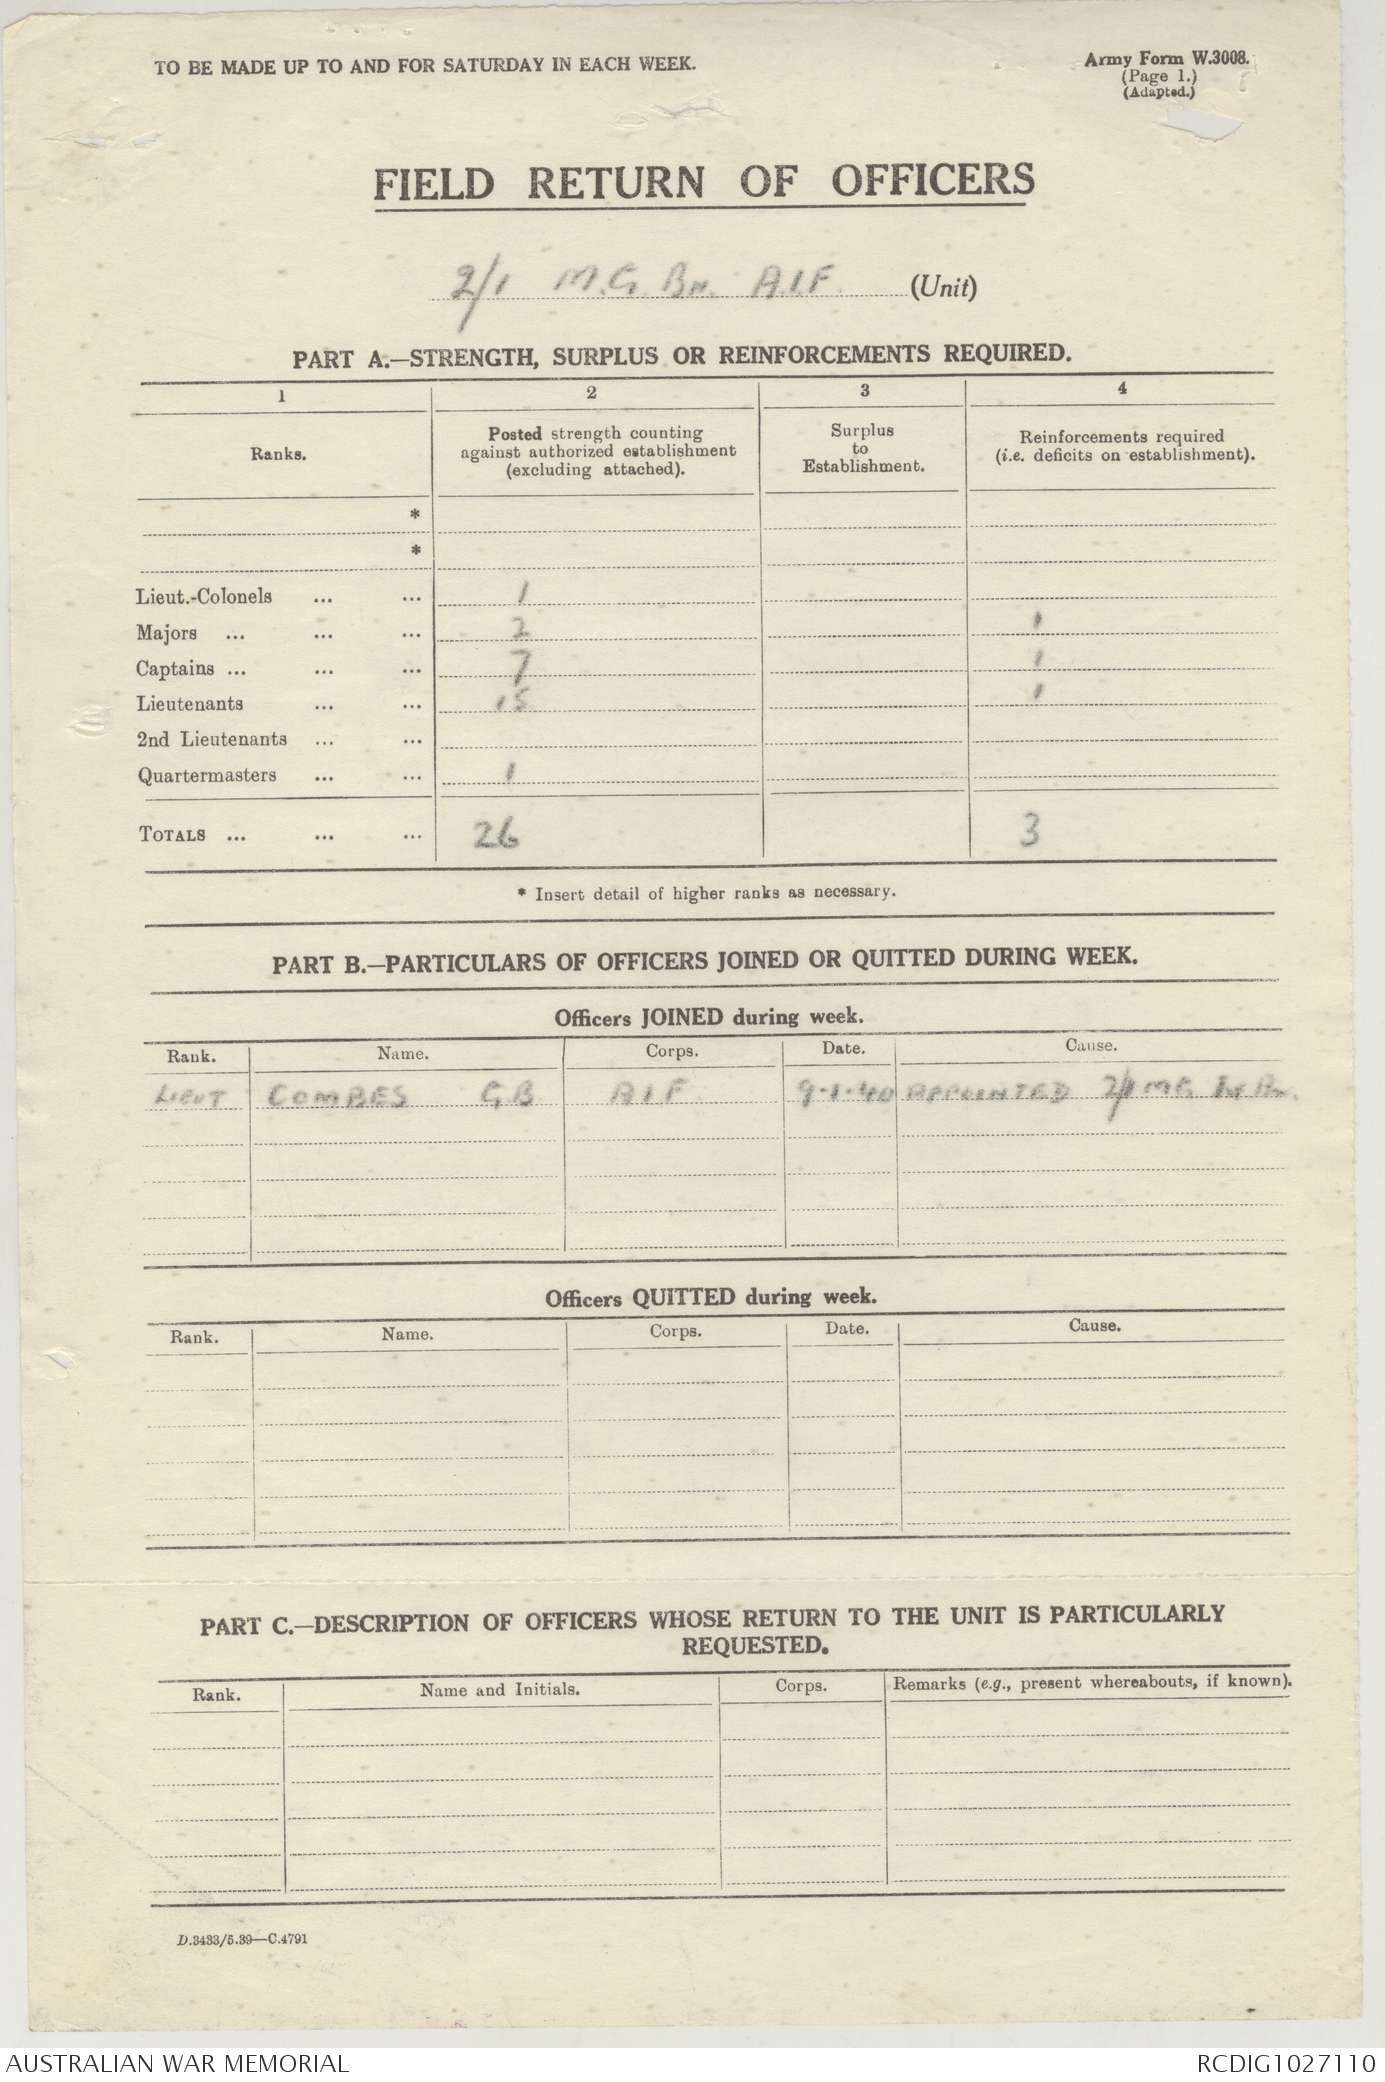 TO BE MADE UP TO AND FOR SATURDAY IN EACH WEEK.
Army Form W.3008.
(Page 1.)
(Adapted.)
FIELD RETURN OF OFFICERS
2/1 M.G. Bn. A.I.F. (Unit)
PART A.—STRENGTH, SURPLUS OR REINFORCEMENTS REQUIRED.
1 2 3 4
Ranks.
Posted strength counting
against authorized establishment
(excluding attached).
Surplus
to
Establishment.
Reinforcements required
(i.e. deficits on establishment).
*
*
Lieut.-Colonels ... ... 1
Majors ... ... ... 2 1
Captains ... ... ... 7 1
Lieutenants ... ... 15 1
2nd Lieutenants ... ...
Quartermasters ... ... 1
TOTALS ... ... ... 26 3
* Insert detail of higher ranks as necessary.
PART B.—PARTICULARS OF OFFICERS JOINED OR QUITTED DURING WEEK.
Officers JOINED during week.
Rank. Name. Corps. Date. Cause.
LIEUT COMBES G B A I F 9-1-40 APPOINTED 2/1 MG Bn.
Officers QUITTED during week.
Rank. Name. Corps. Date. Cause.
PART C.—DESCRIPTION OF OFFICERS WHOSE RETURN TO THE UNIT IS PARTICULARLY
REQUESTED.
Rank. Name and Initials. Corps. Remarks (e.g., present whereabouts, if known).
D.3433/5.39—C.4791
AUSTRALIAN WAR MEMORIAL
RCDIG1027110